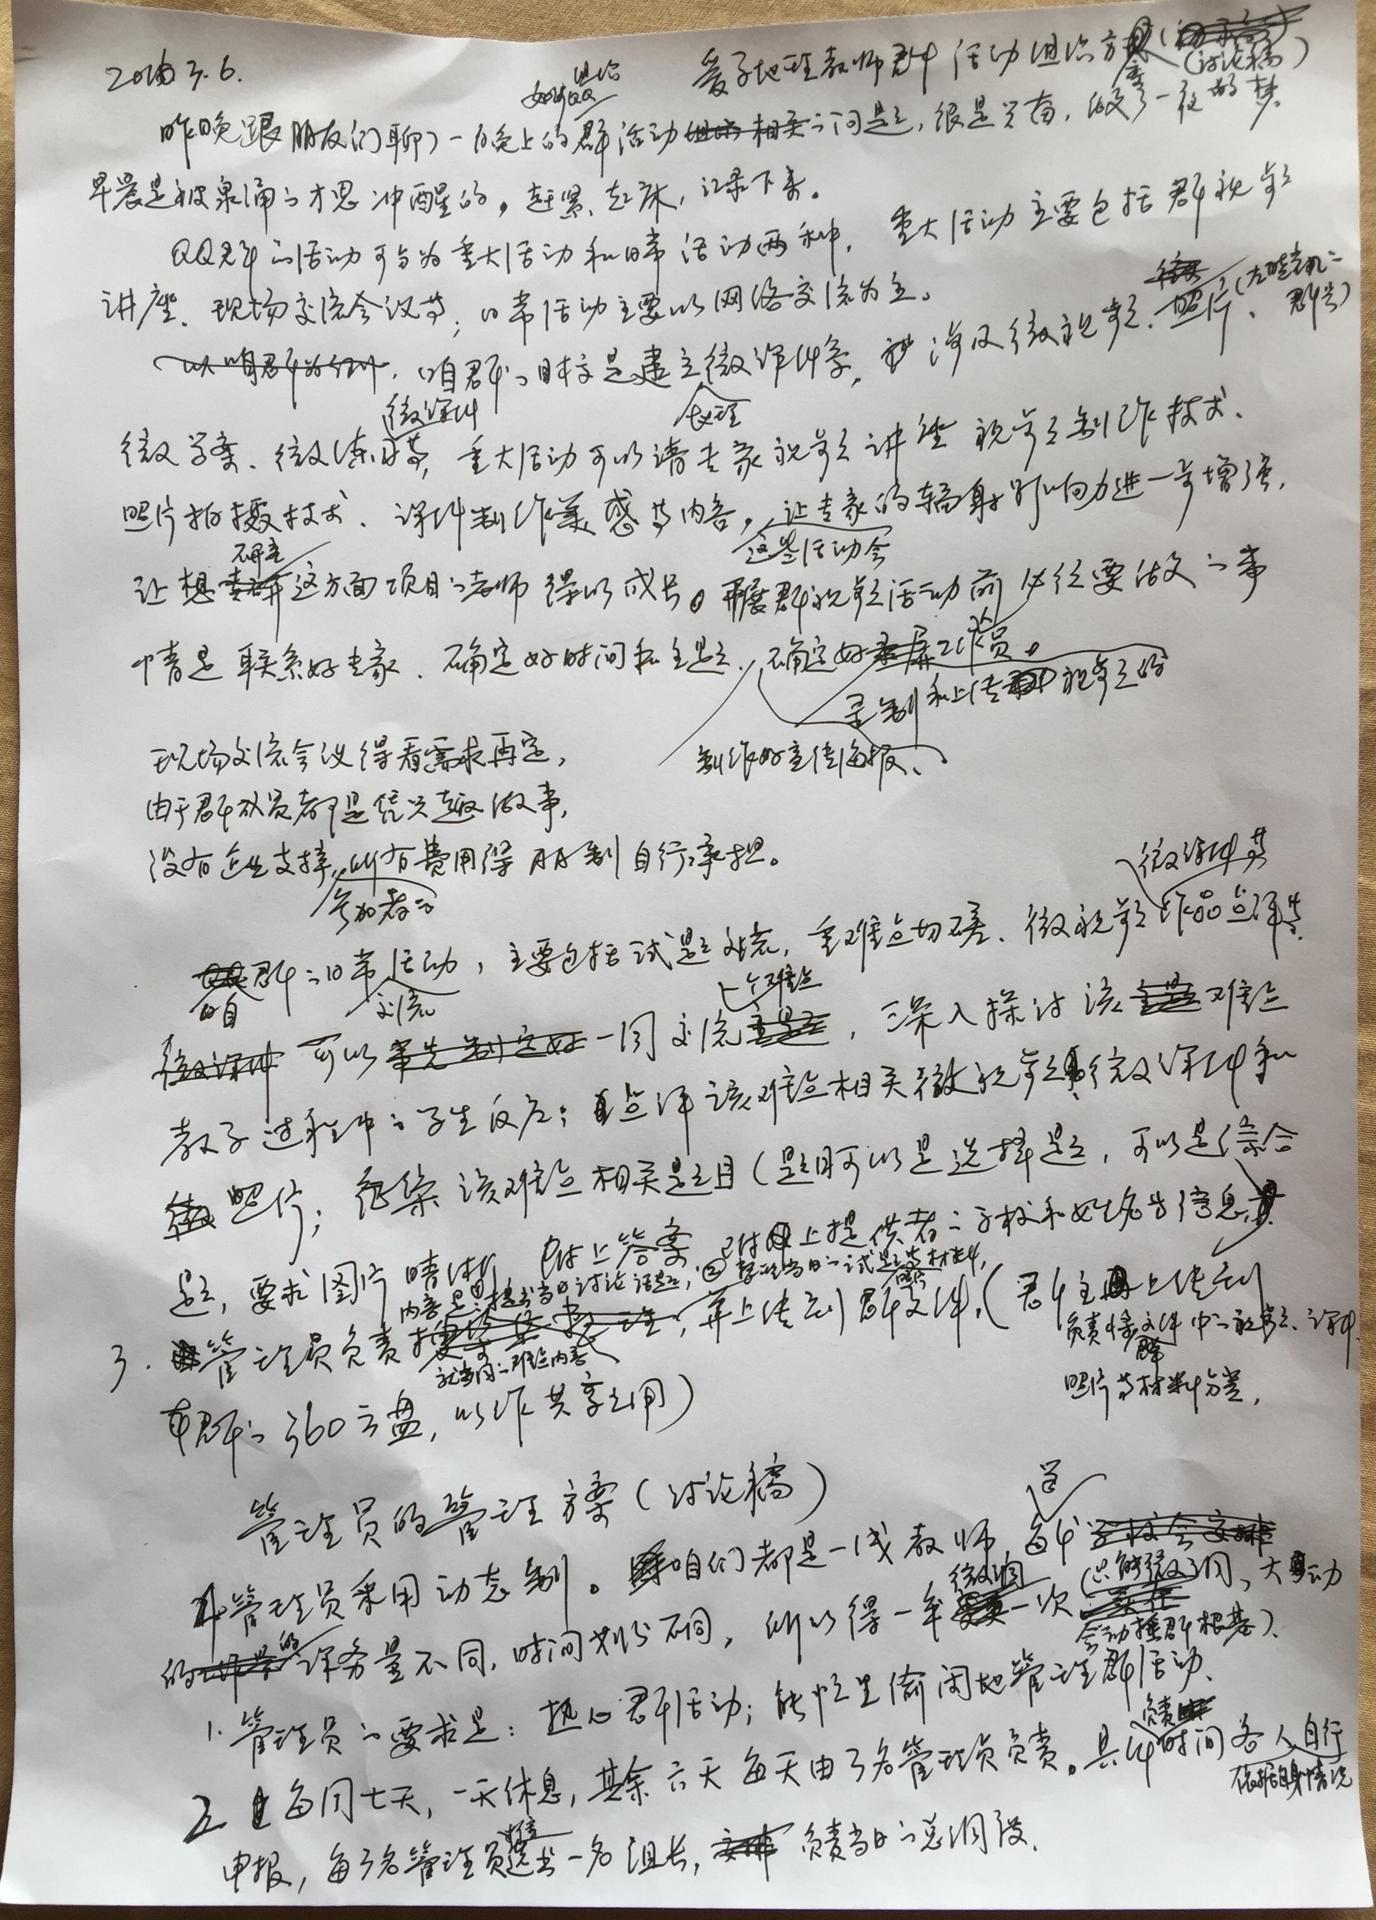 2016 3.6.
地理教师群活动组织方案(讨论稿)
如何组织
昨晚跟朋友们聊了一晚上的群活动相关的问题,很是兴奋,做了一夜的梦。
早晨是被泉涌的才思冲醒的。赶紧起床,记录下来。
QQ群的活动可分为重大活动和日常活动两种,重大活动主要包括群视频
讲座、现场交流会议等;日常活动主要以网络交流为主。
咱群的目标是建立微课件系,涉及微视频、照片、
地理
微课件
微学案、微练习等,重大活动可以请专家视频讲座视频制作技术、
照片拍摄技术、课件制作美感等内容。让专家的辐射影响力进一步增强,
这些活动会
研究
让想这方面项目的老师得以成长。开展群视频活动前必须要做的事
情是联系好专家、确定好时间和主题、确定好录屏工作人员。
录制和上传视频的
制作好宣传海报、
现场交流会议得看需求再定,
由于群成员都是凭兴趣做事,
没有企业支持,所有费用得AA制自行承担。
参加者的
微课件等
咱群的日常活动,主要包括试题交流,重难点切磋、微视频作品点评等
交流
一个难点
可以一周交流,深入探讨该难点
教学过程中的学生反应;点评该难点相关微视频、微课件和
照片;征集该难点相关题目(题目可以是选择题,可以是综合
题,要求图片清晰,附上答案,附上提供者的学校和姓名等信息
内容是:提出当日讨论话题,②整理当日的试题等材料,
3.管理员负责,并上传到群文件,(群主上传到
就当周的难点内容
负责将文件中的视频、课件
照片等材料分类,
本群的360云盘,以作共享之用)
管理员的管理方案(讨论稿)
管理员采用动态制。咱们都是一线教师,每年
的课务量不同,时间划分不同,所以得一年微调一次(只能微调、大动
会动摇群根基)、
1.管理员的要求是:热心群活动;能忙里偷闲地管理群活动、
2.每周七天,一天休息,其余六天每天由3名管理员负责。具体时间各人自行
负责
依据自身情况
申报,每3名管理员选出一名组长,负责当日的总调段、